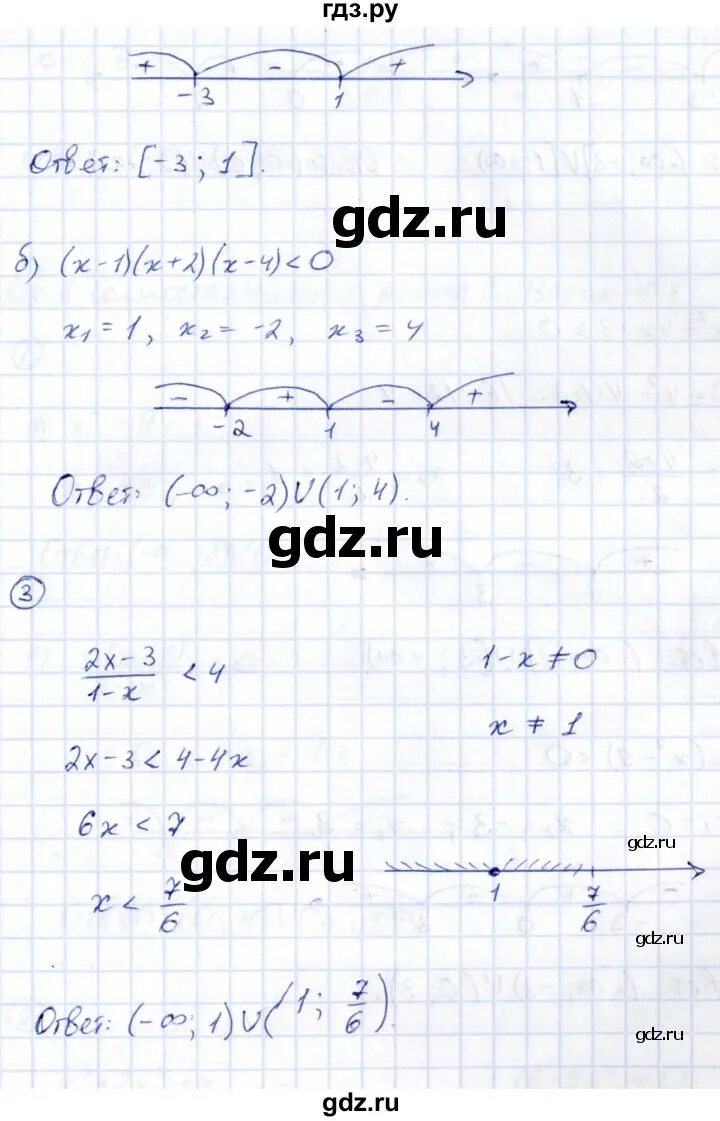 гдз.ру
+ - +
-3 1
Ответ: [-3; 1].
gdz.ru
б) (x-1)(x+2)(x-4)<0
x₁=1, x₂=-2, x₃=4
- + - +
-2 1 4
Ответ: (-∞; -2)∪(1; 4).
gdz.ru
3
2x-3/1-x < 4
1-x≠0
x ≠ 1
2x-3<4-4x
6x<7
gdz.ru
gdz.ru
x < 7/6
1 7/6
gdz.ru
Ответ: (-∞; 1)∪(1; 7/6).
gdz.ru